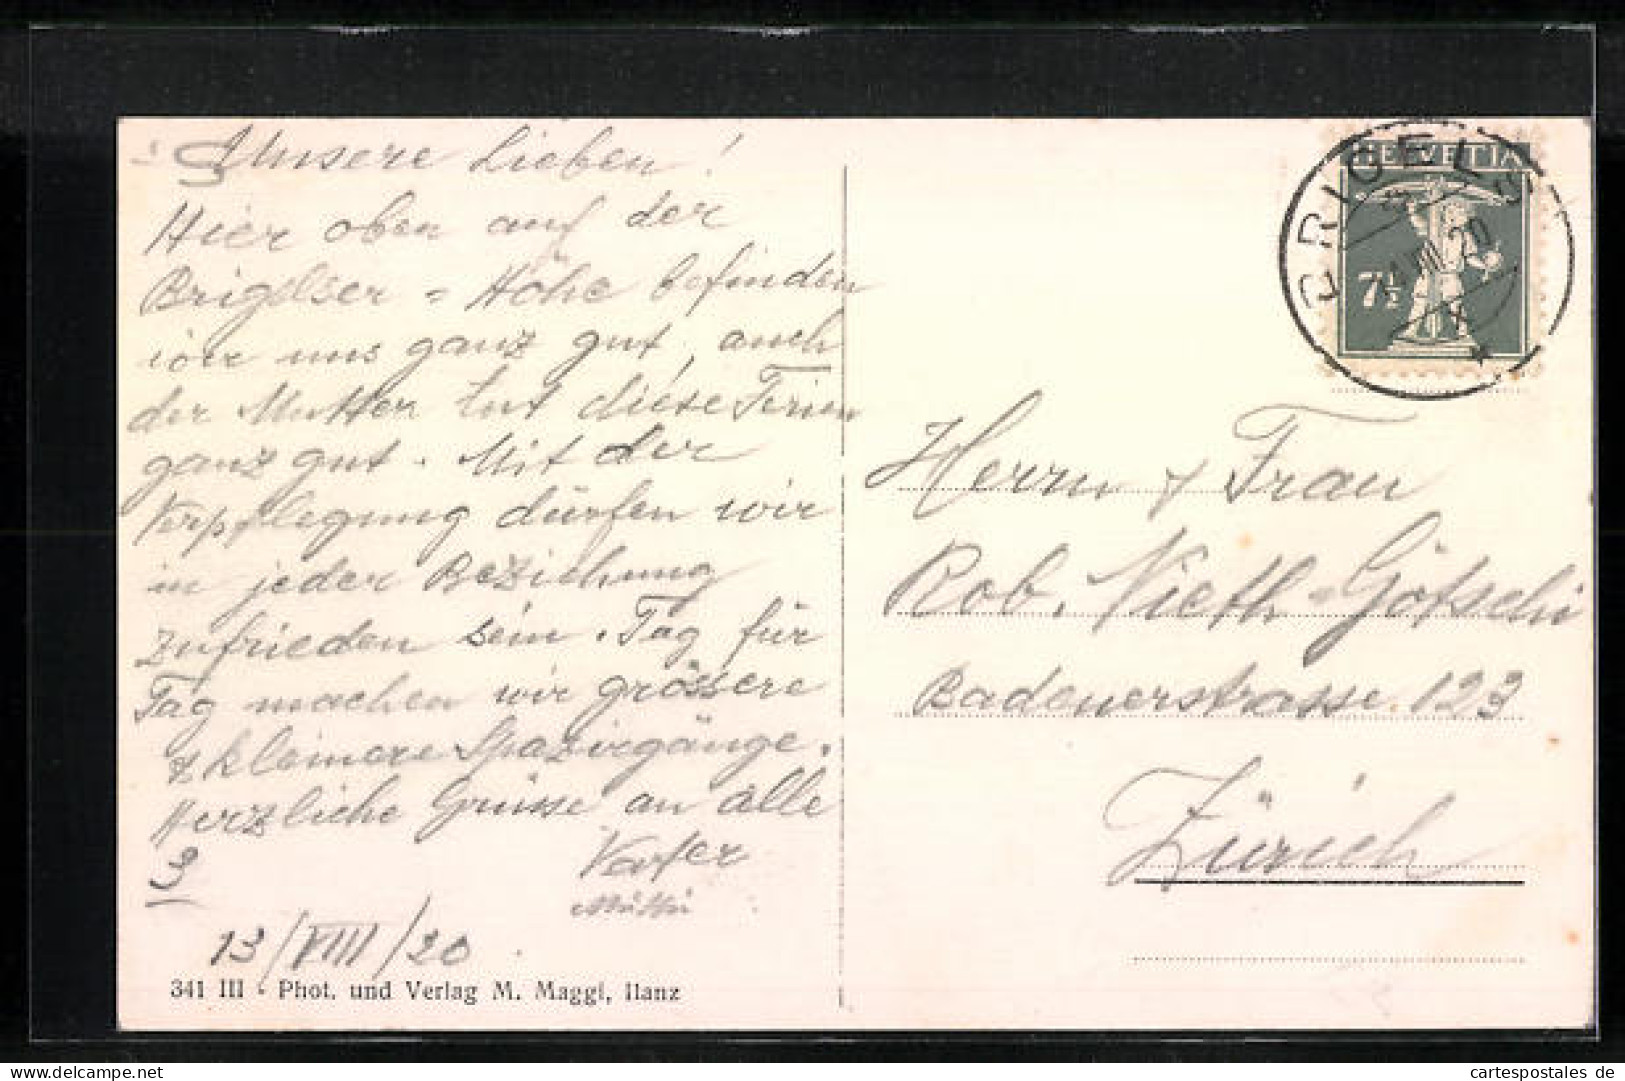 Unsere Lieben!
Hier oben auf der
Brigelser = Höhe befinden
wir uns ganz gut, auch
der Mutter tut diese Ferien
ganz gut. Mit der
Verpflegung dürfen wir
in jeder Beziehung
zufrieden sein. Tag für
Tag machen wir grössere
& kleinere Spaziergänge.
Herzliche Grüsse an alle
Vater
Mutti
3
13/VIII/20
341 III - Phot. und Verlag M. Maggi, Ilanz
BRIGELS
VIII.20
HELVETIA
7½
Herrn & Frau
Rob. Nieth-Götschi
Badenerstrasse 123
Zürich
cartespostales de